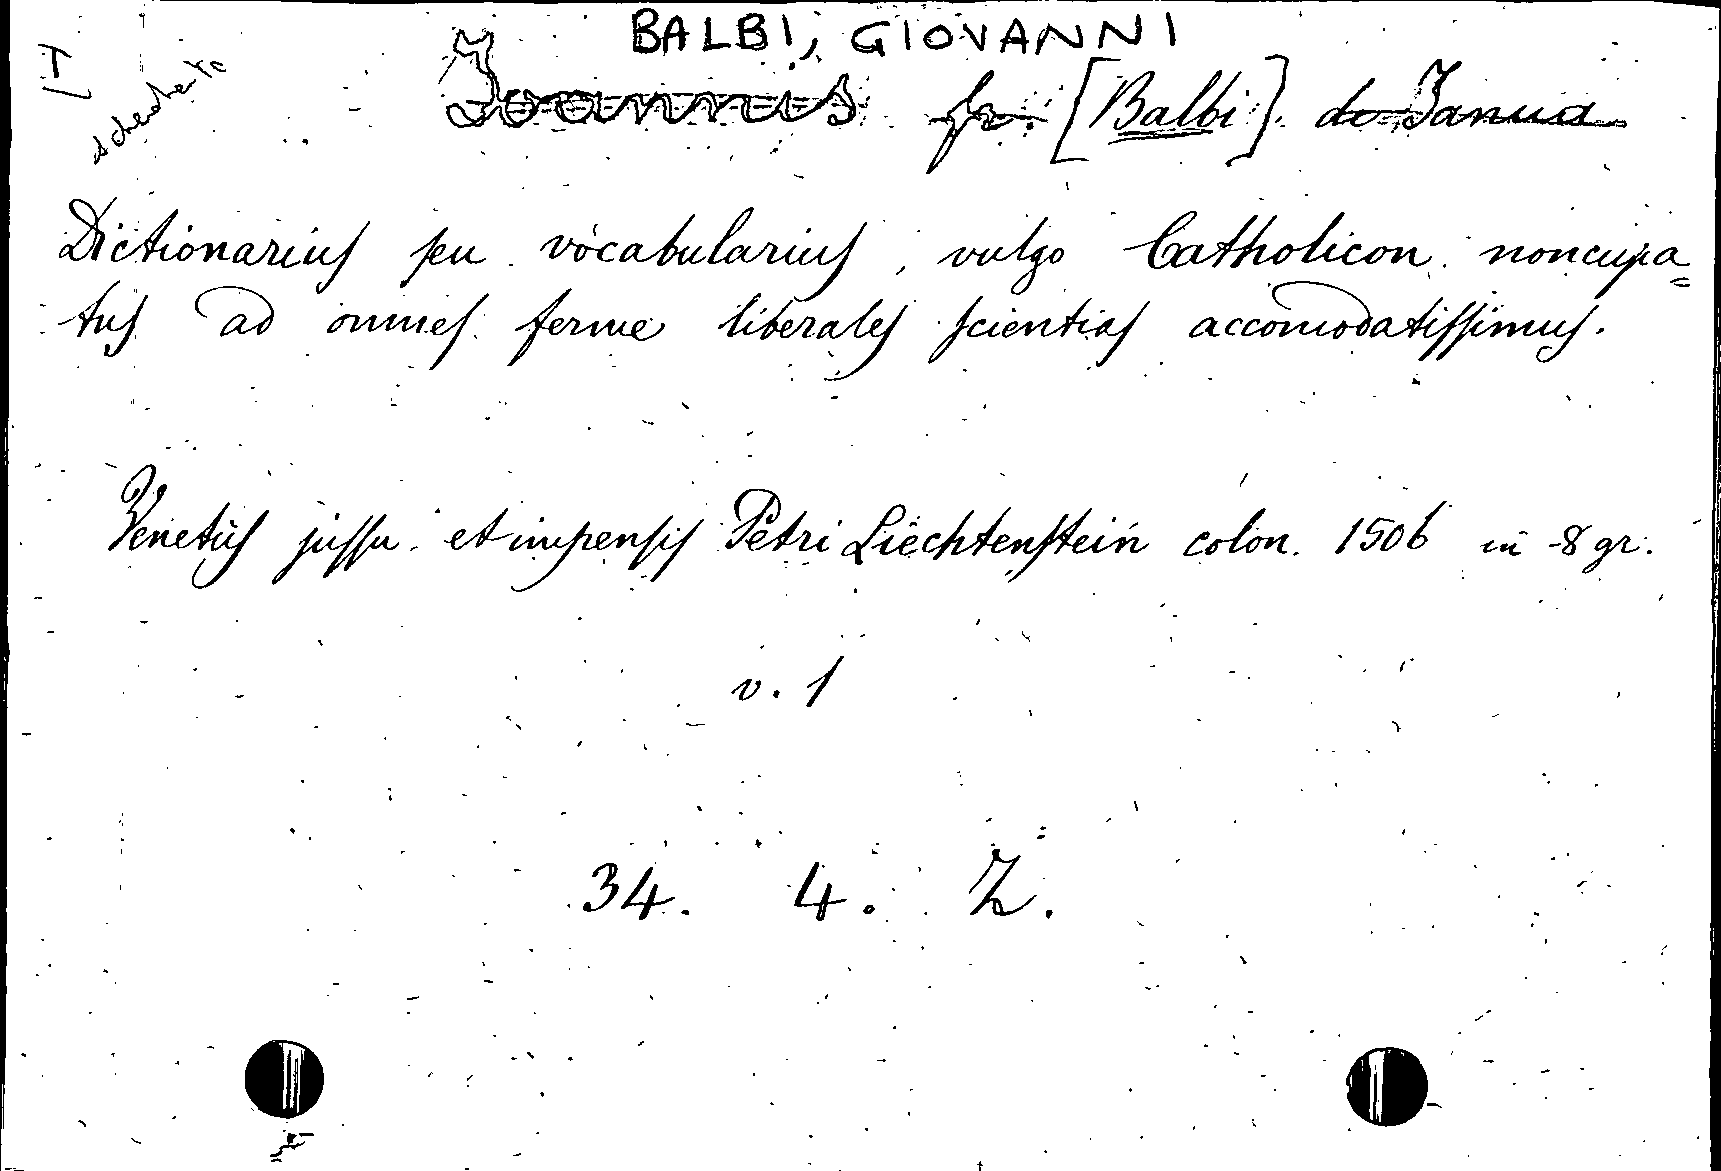 BALBI, GIOVANNI
schedato
Joannes fr. [Balbi] de Janua
Dictionariuſ ſeu vocabulariuſ, vulgo Catholicon noncupa=
tuſ ad omneſ ferme liberaleſ ſcientiaſ accomodatiſſimuſ.
Venetiiſ juſſu et impenſiſ Petri Liechtenſtein colon. 1506 in-8 gr.
v. 1
34. 4. Z.